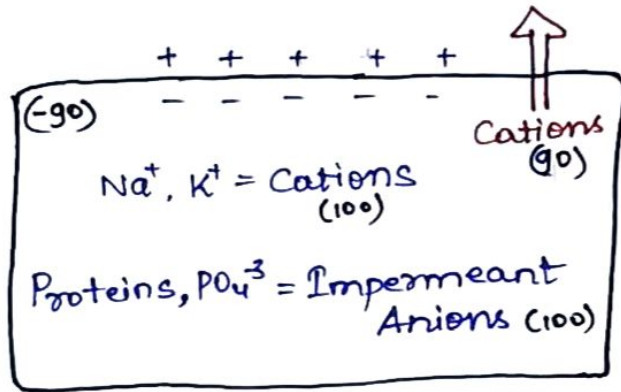 + + + + +
(-90) - - - - -
Cations
(90)
Na⁺, K⁺ = Cations
(100)
Proteins, PO₄⁻³ = Impermeant
Anions (100)